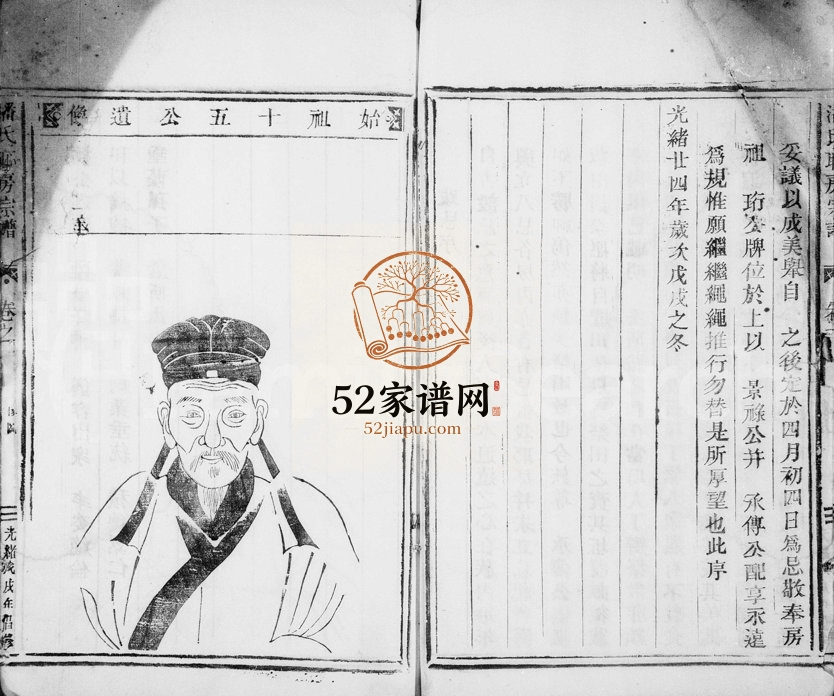 妥議以成美舉自 之後定於四月初四日爲忌敬奉房
祖 珩公牌位於上以 景祿公并 承傳公配享永遠
爲規惟願繼繼繩繩推行勿替是所厚望也此序
光緒廿四年歲次戊戌之冬
始祖十五公遺像
潘氏 房宗譜
卷之一
光緒戊戌年 修
52家谱网
52jiapu.com